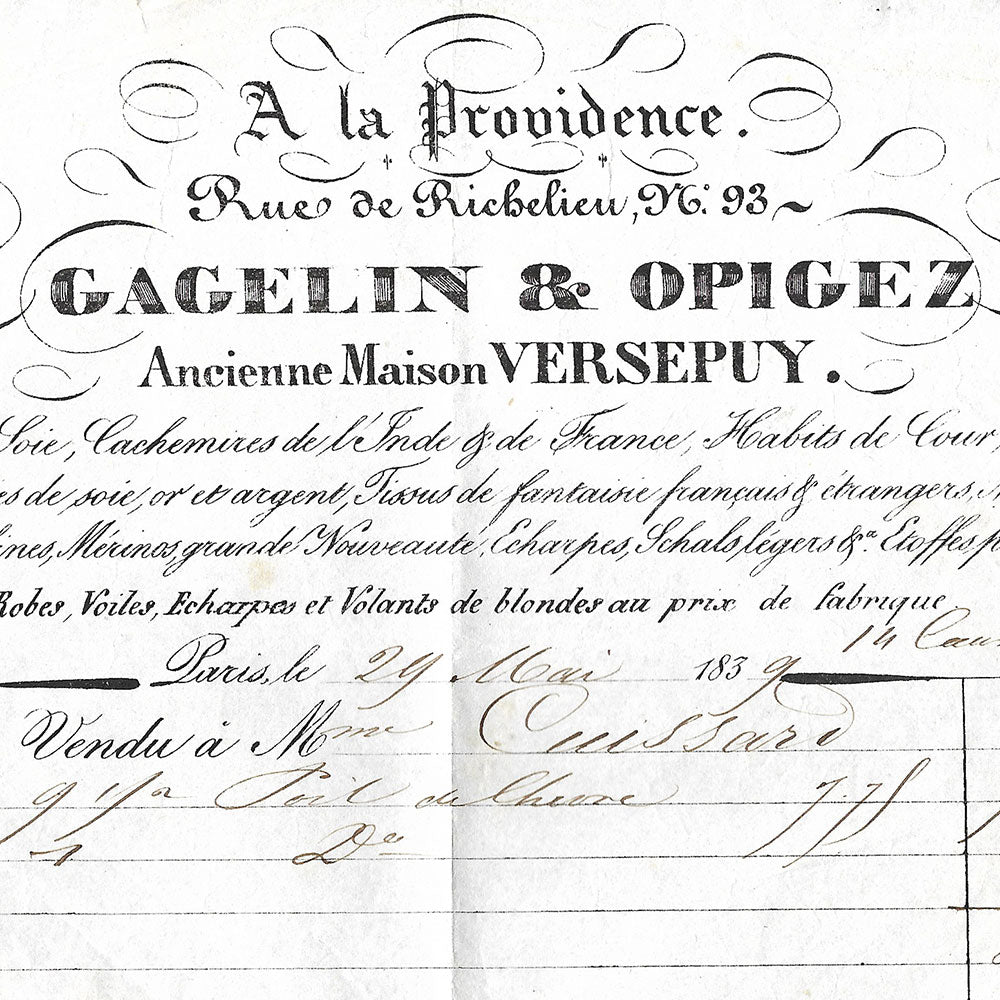 A la Providence.
Rue de Richelieu, N.° 93
GAGELIN & OPIGEZ
Ancienne Maison VERSEPUY.
Soie, Cachemires de l'Inde & de France, Habits de Cour,
es de soie, or et argent, Tissus de fantaisie français & étrangers,
ines, Mérinos, grande Nouveauté, Echarpes, Schals légers &a. Etoffes p
Robes, Voiles, Echarpes et Volants de blondes au prix de fabrique.
14
Paris, le 29 Mai 1839
Vendu à Mme Cuissard
9 1/2 Poil de Chevre 7.75
1 Do